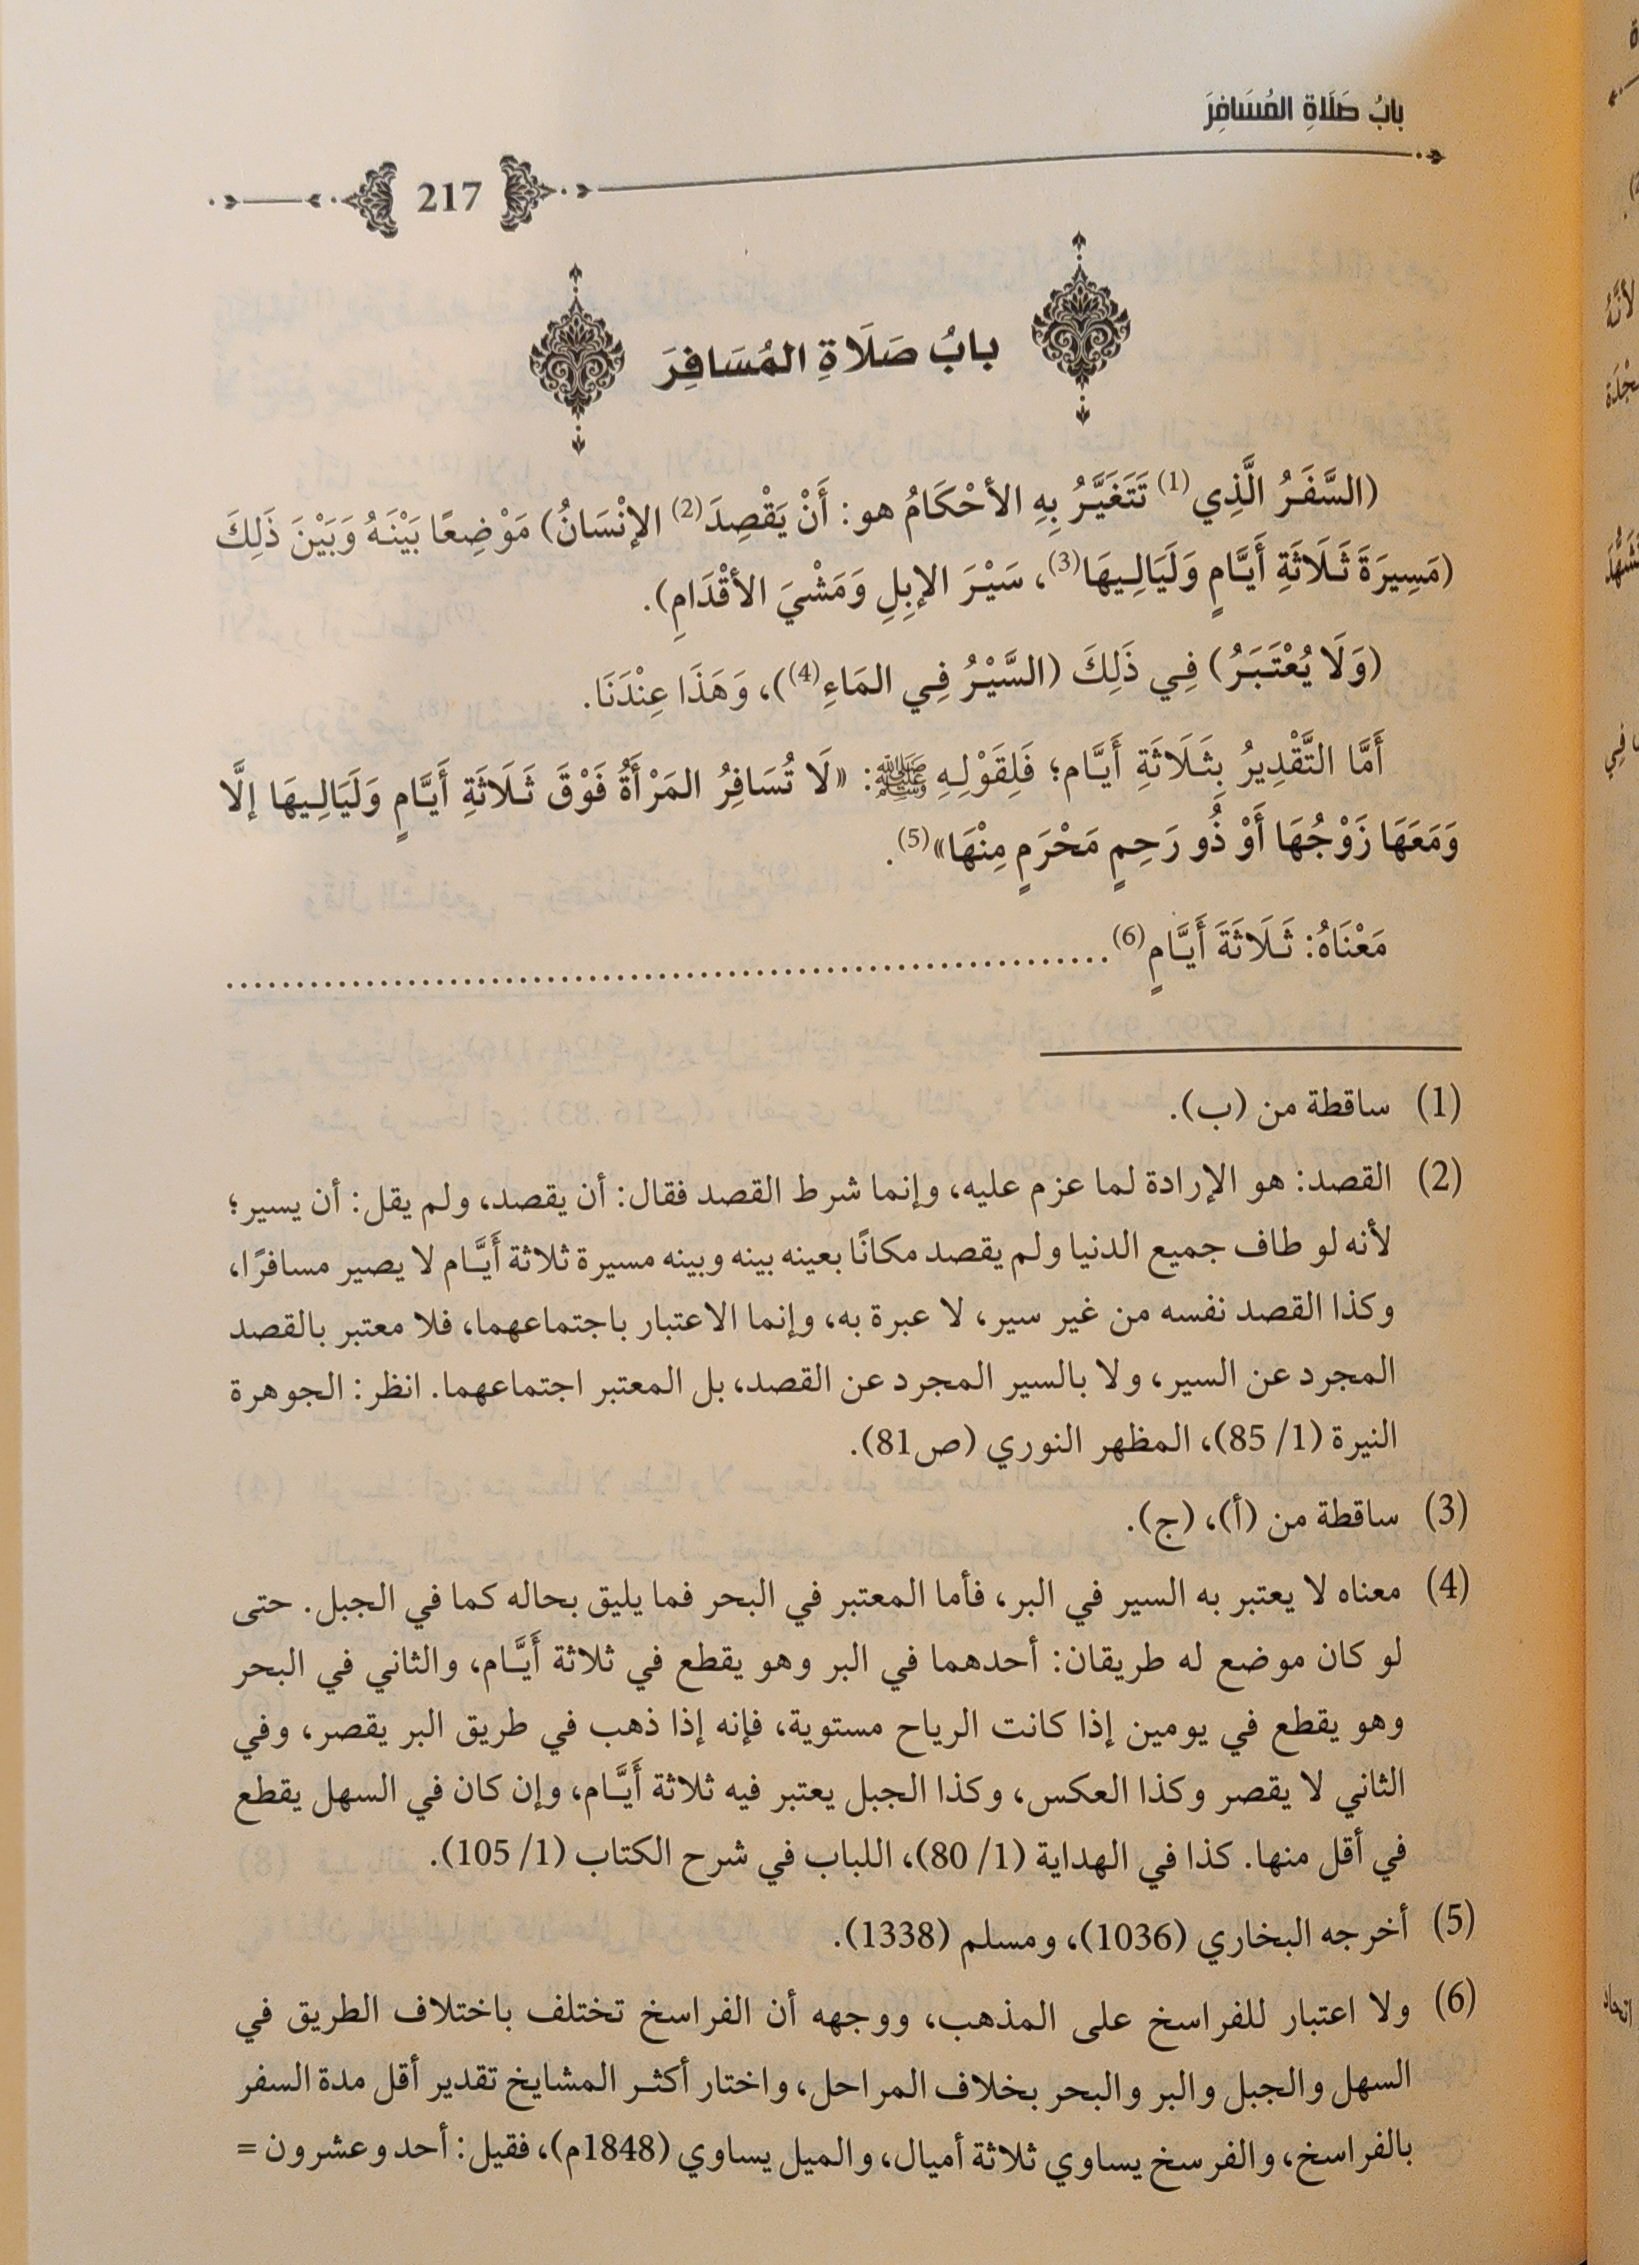 بابُ صَلَاةِ المُسَافِرَ
217
بابُ صَلَاةِ المُسَافِرَ
(السَّفَرُ الَّذِي(1) تَتَغَيَّرُ بِهِ الأحْكَامُ هو: أَنْ يَقْصِدَ(2) الإنْسَانُ) مَوْضِعًا بَيْنَهُ وَبَيْنَ ذَلِكَ
(مَسِيرَةَ ثَلَاثَةِ أَيَّامٍ وَلَيَالِيهَا(3)، سَيْرَ الإبِلِ وَمَشْيَ الأقْدَامِ).
(وَلَا يُعْتَبَرُ) فِي ذَلِكَ (السَّيْرُ فِي المَاءِ(4))، وَهَذَا عِنْدَنَا.
أَمَّا التَّقْدِيرُ بِثَلَاثَةِ أَيَّام؛ فَلِقَوْلِهِ ﷺ: «لَا تُسَافِرُ المَرْأَةُ فَوْقَ ثَلَاثَةِ أَيَّامٍ وَلَيَالِيهَا إلَّا
وَمَعَهَا زَوْجُهَا أَوْ ذُو رَحِمٍ مَحْرَمٍ مِنْهَا»(5).
مَعْنَاهُ: ثَلَاثَةَ أَيَّامٍ(6)..............................................................
(1) ساقطة من (ب).
(2) القصد: هو الإرادة لما عزم عليه، وإنما شرط القصد فقال: أن يقصد، ولم يقل: أن يسير؛
لأنه لو طاف جميع الدنيا ولم يقصد مكانًا بعينه بينه وبينه مسيرة ثلاثة أَيَّام لا يصير مسافرًا،
وكذا القصد نفسه من غير سير، لا عبرة به، وإنما الاعتبار باجتماعهما، فلا معتبر بالقصد
المجرد عن السير، ولا بالسير المجرد عن القصد، بل المعتبر اجتماعهما. انظر: الجوهرة
النيرة (1/ 85)، المظهر النوري (ص81).
(3) ساقطة من (أ)، (ج).
(4) معناه لا يعتبر به السير في البر، فأما المعتبر في البحر فما يليق بحاله كما في الجبل. حتى
لو كان موضع له طريقان: أحدهما في البر وهو يقطع في ثلاثة أَيَّام، والثاني في البحر
وهو يقطع في يومين إذا كانت الرياح مستوية، فإنه إذا ذهب في طريق البر يقصر، وفي
الثاني لا يقصر وكذا العكس، وكذا الجبل يعتبر فيه ثلاثة أَيَّام، وإن كان في السهل يقطع
في أقل منها. كذا في الهداية (1/ 80)، اللباب في شرح الكتاب (1/ 105).
(5) أخرجه البخاري (1036)، ومسلم (1338).
(6) ولا اعتبار للفراسخ على المذهب، ووجهه أن الفراسخ تختلف باختلاف الطريق في
السهل والجبل والبر والبحر بخلاف المراحل، واختار أكثر المشايخ تقدير أقل مدة السفر
بالفراسخ، والفرسخ يساوي ثلاثة أميال، والميل يساوي (1848م)، فقيل: أحد وعشرون =